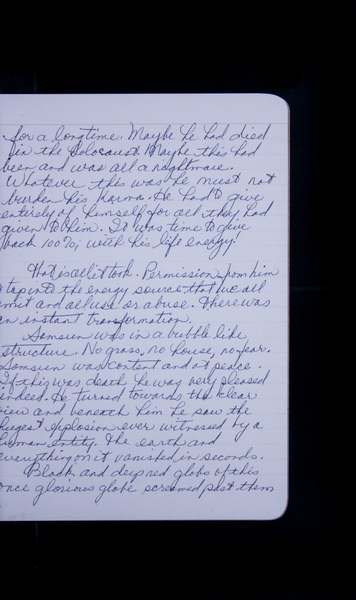 for a longtime. Maybe he had died
in the Holocaust. Maybe this had
been and was all a nightmare.
Whatever this was he must not
burden his karma. He had to give
entirely of himself for all they had
given to him. It was time to give
back 100% with his life energy!
That is all it took. Permission from him
to tap into the energy source that we all
emit and all use or abuse. There was
an instant transformation.
Samsun was in a bubble like
structure. No grass, no house, no fear.
Samsun was content and at peace.
If this was death he was very pleased
indeed. He turned towards the clear
view and beneath him he saw the
hugest explosion ever witnessed by a
human entity. The earth and
everything on it vanished in seconds.
Black and deep red globs of this
once glorious globe screamed past them